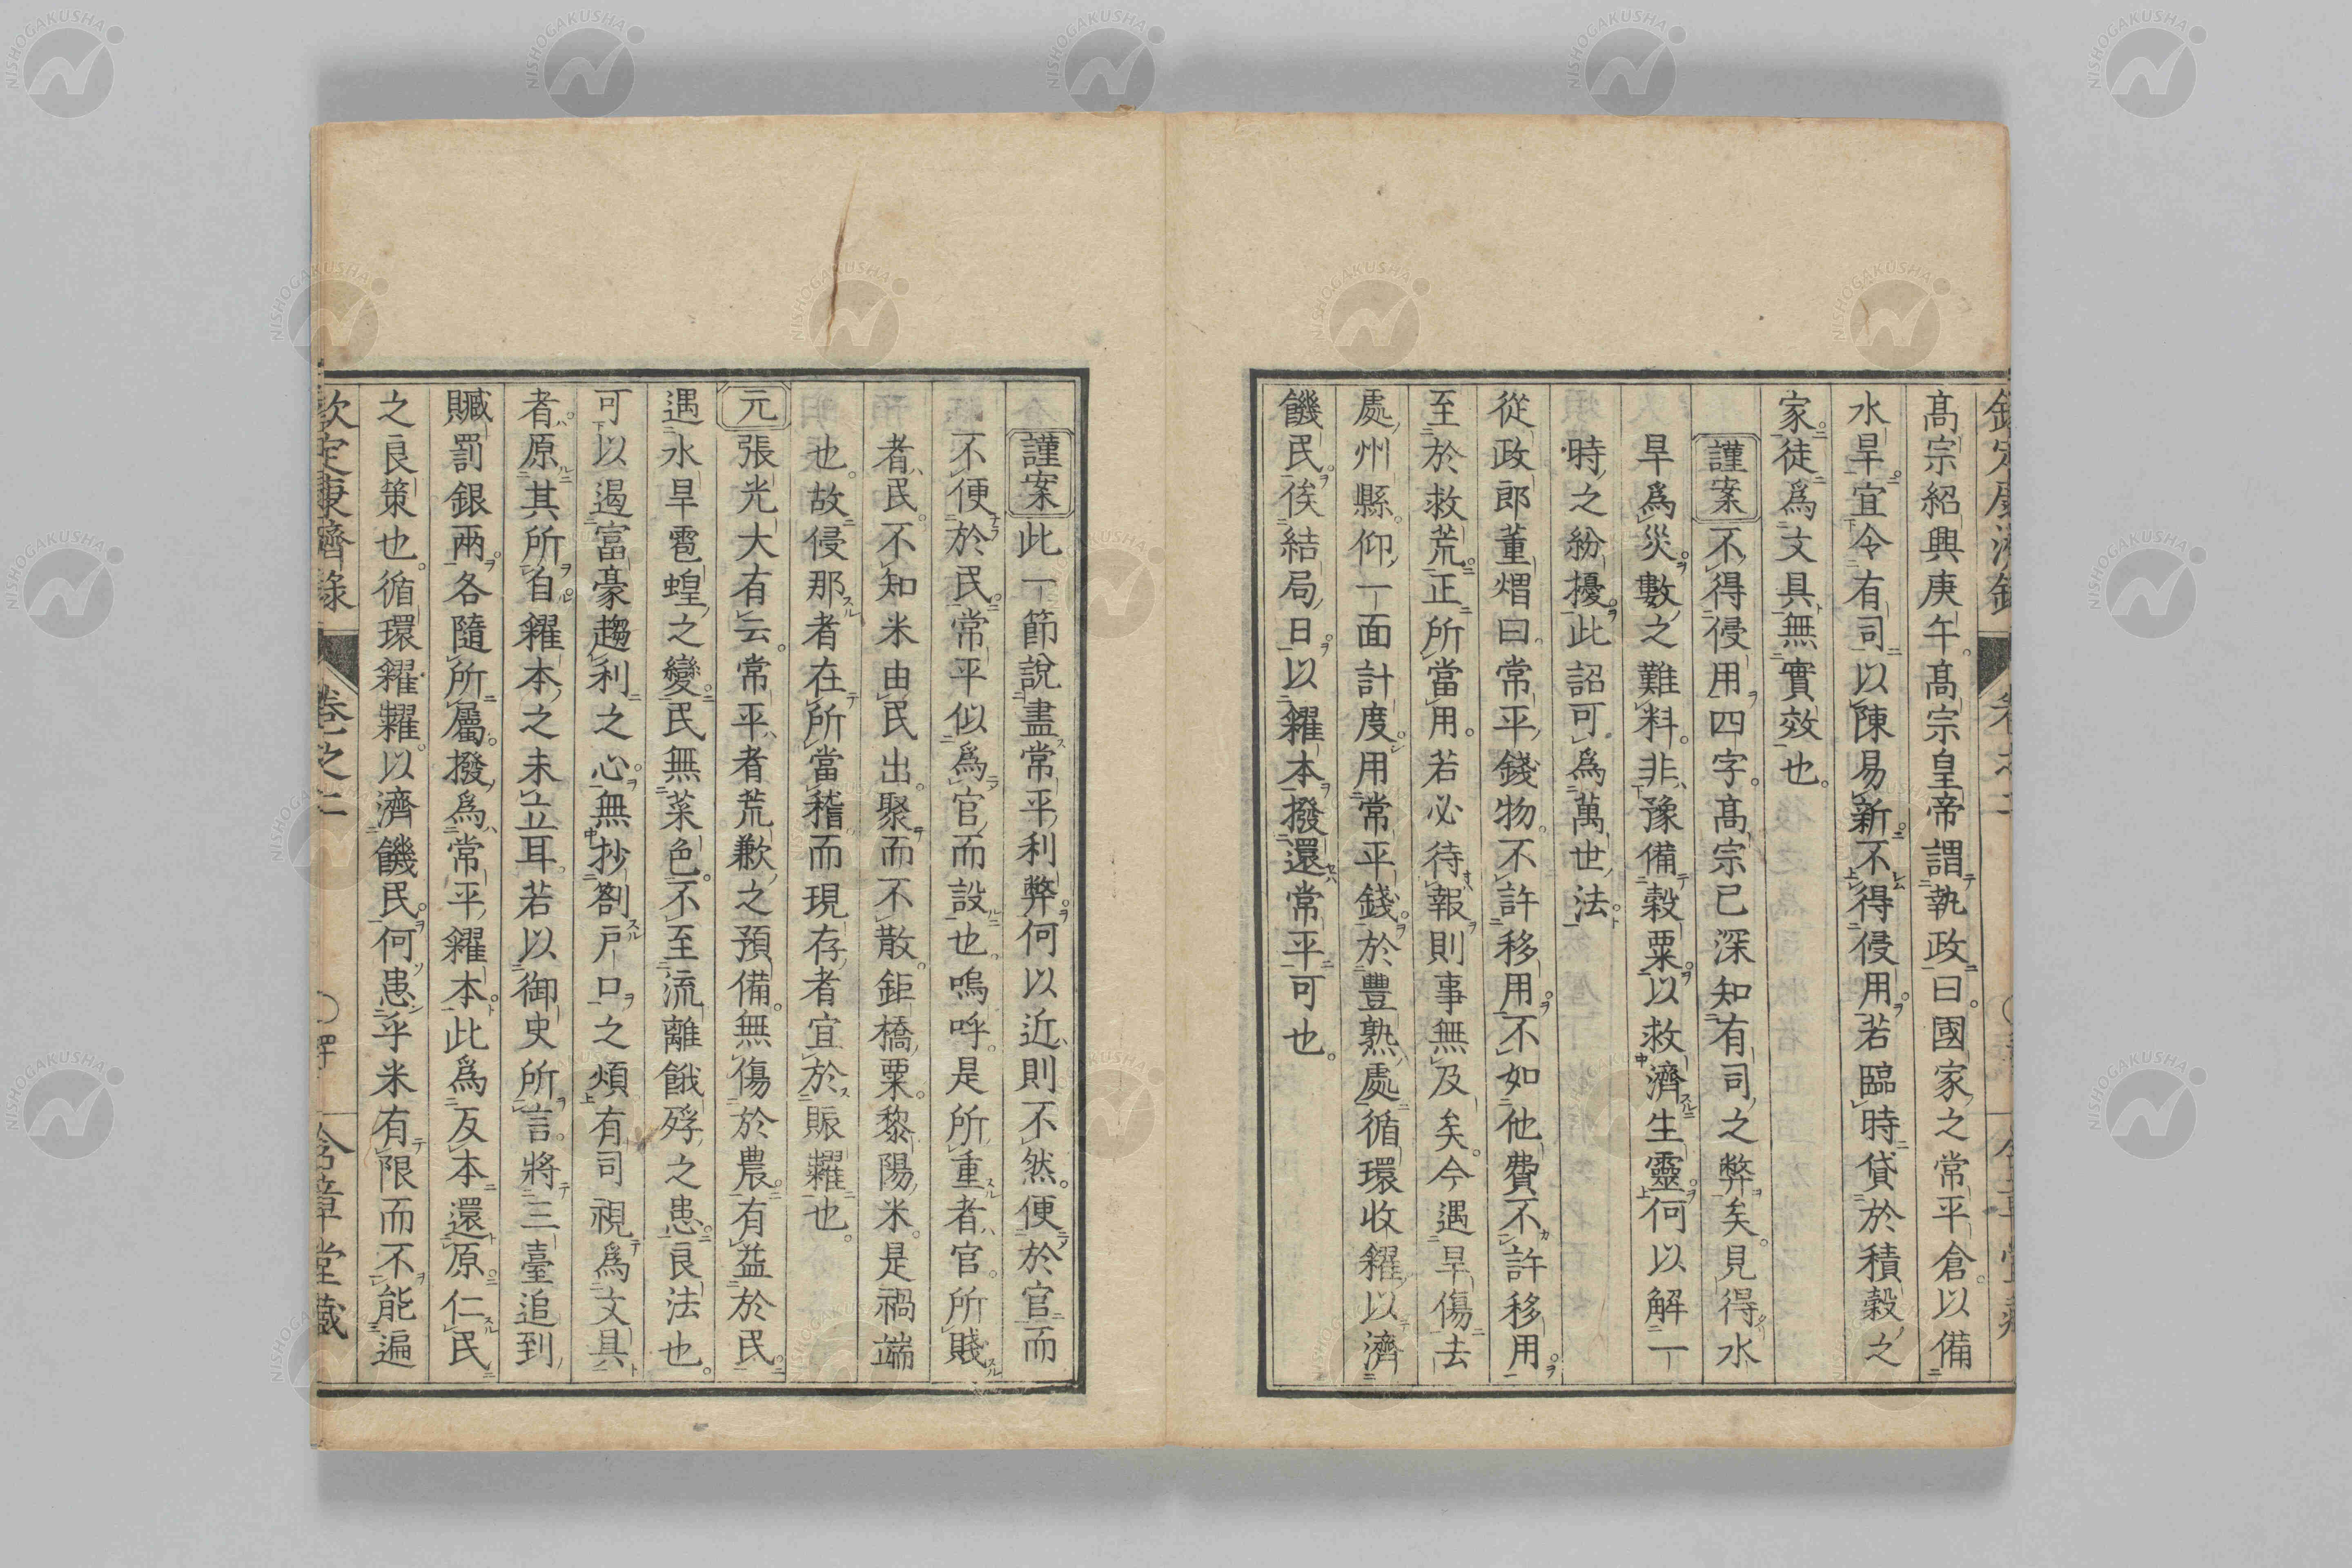 高宗紹興庚午。高宗皇帝謂執政曰。國家之常平倉。以備
水旱。宜令有司以陳易新。不得侵用。若臨時貸於積穀之
家。徒爲文具。無實效也。
謹案不得侵用四字。高宗已深知有司之弊矣。見得水
旱爲災。數之難料。非豫備穀粟。以救濟生靈。何以解一
時之紛擾。此詔可爲萬世法。
從政郎董煟曰。常平錢物。不許移用。不如他費不許移用。
至於救荒。正所當用。若必待報則事無及矣。今遇旱傷去
處州縣。仰一面計度。用常平錢。於豐熟處循環收糴以濟
饑民。俟結局日。以糴本撥還常平可也。
謹案此一節說盡常平利弊。何以近則不然。便於官而
不便於民。常平似爲官而設也。嗚呼。是所重者官。所賤
者民。不知米由民出。聚而不散。鉅橋粟。黎陽米。是禍端
也。故侵那者在所當稽而現存者宜於賑糶也。
元張光大有云。常平者荒歉之預備。無傷於農。有益於民。
遇水旱雹蝗之變。民無菜色。不至流離餓殍之患。良法也。
可以遏富豪趨利之心。無抄劄戶口之煩。有司視爲文具
者。原其所自。糴本之未立耳。若以御史所言。將三臺追到
贓罰銀兩。各隨所屬。撥爲常平糴本。此爲反本還原。仁民
之良策也。循環糴糶。以濟饑民。何患乎米有限而不能遍
欽定康濟錄　卷之二